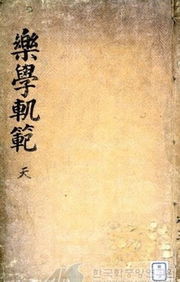 樂學軌範
天
한국학중앙연구원